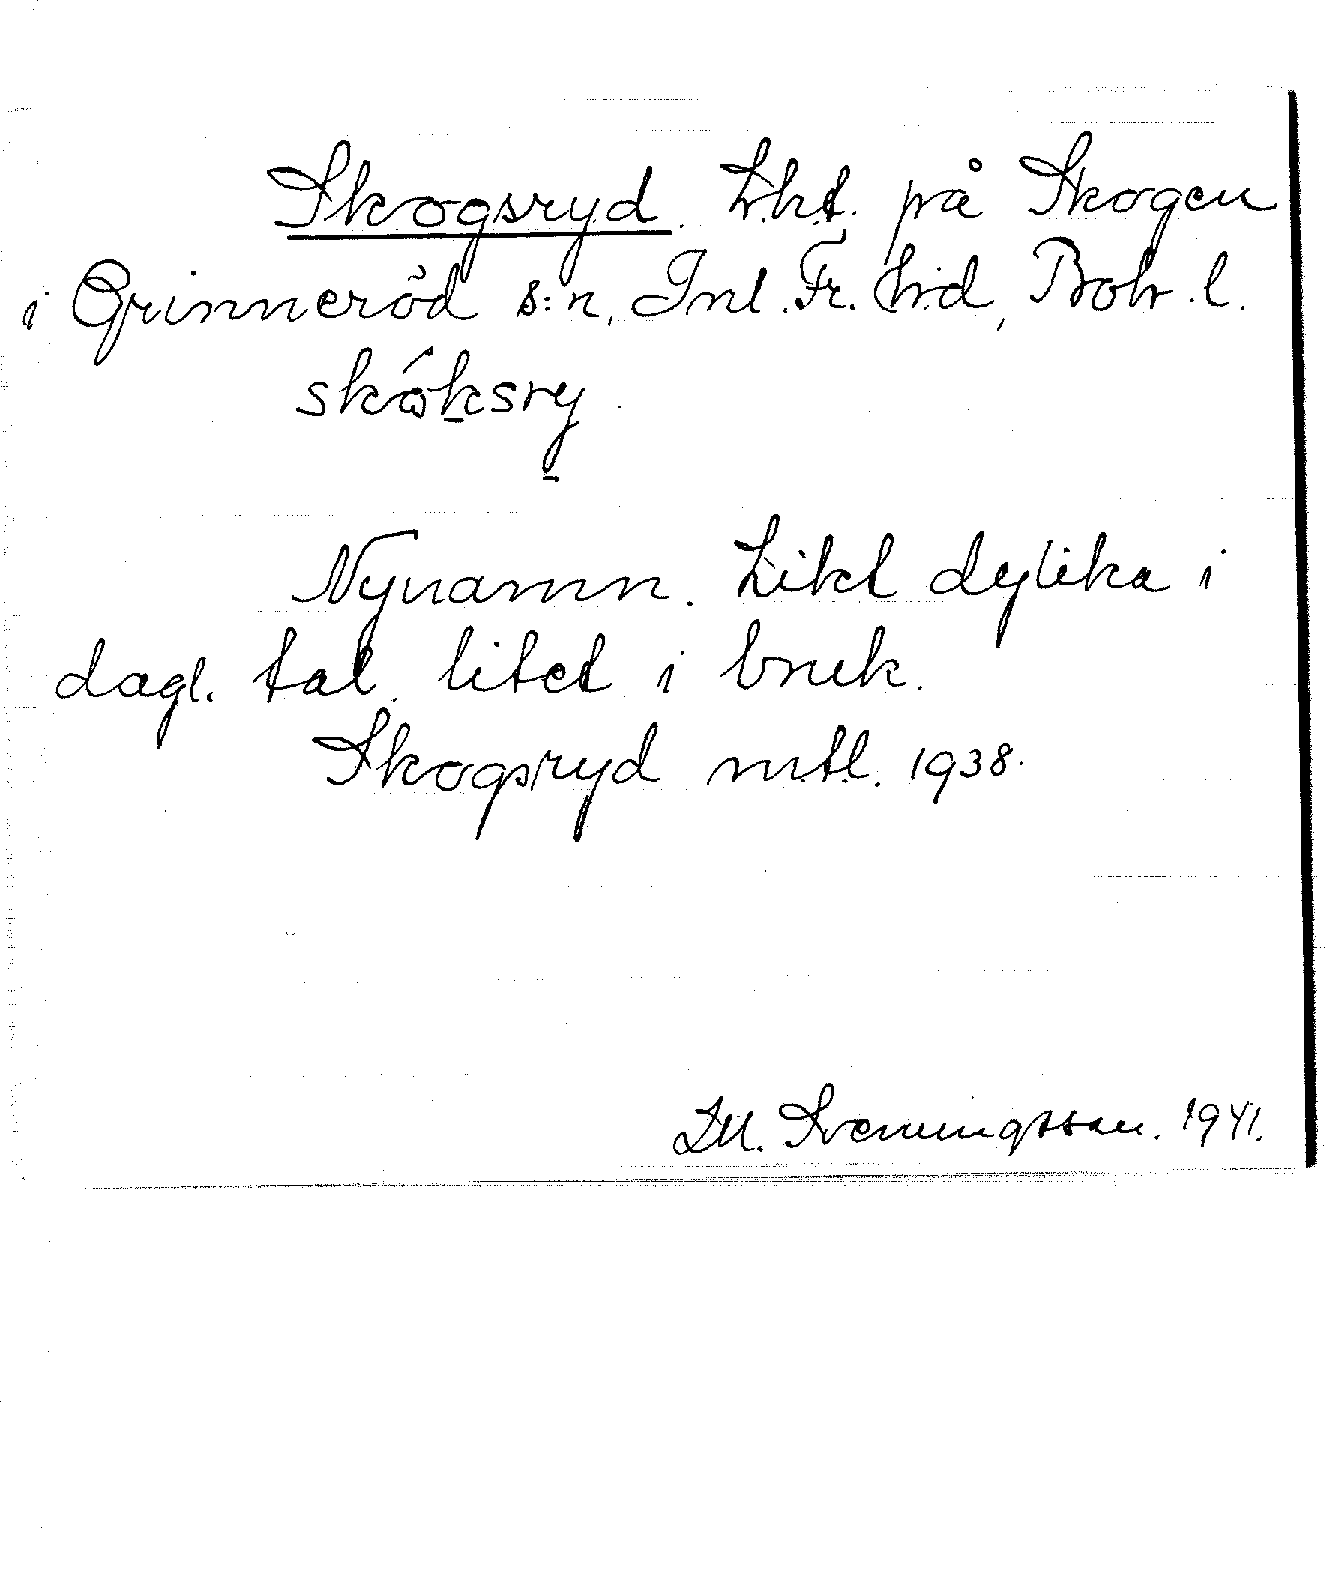 Skogsryd. Lht. på Skogen
i Grinneröd s:n, Inl. Fr. hd, Boh. l.
skóksry
Nynamn. Likt dylika i
dagl. tal litet i bruk.
Skogsryd mtl. 1938.
Sveningsson. 1941.